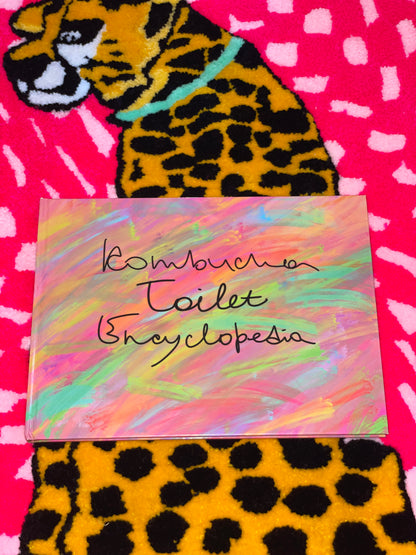 Kombucha
Toilet
Encyclopedia